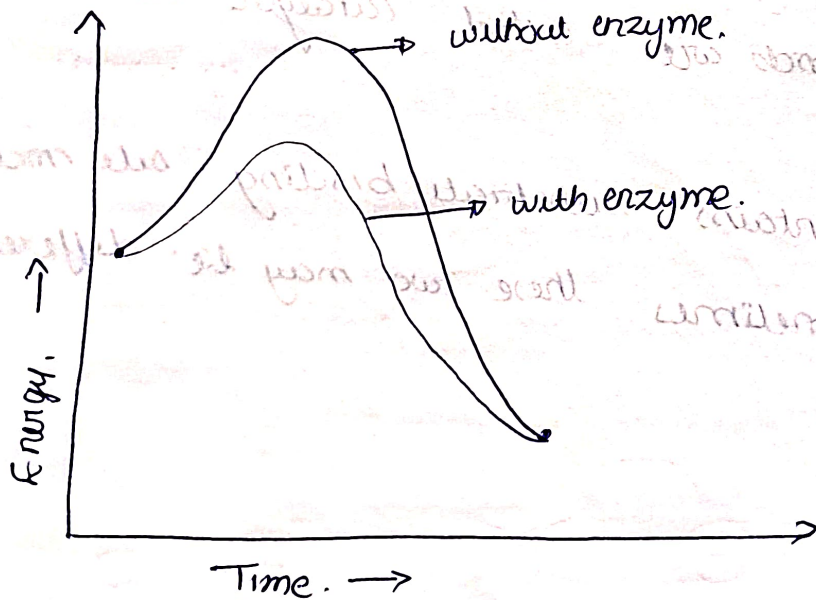 without enzyme.
with enzyme.
Energy. →
Time. →